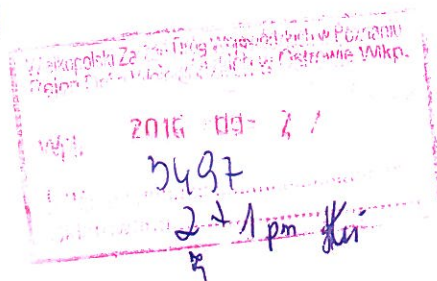 Wielkopolski Zarząd Dróg Wojewódzkich w Poznaniu
Rejon Dróg Wojewódzkich w Ostrowie Wlkp.
Wpł. 2016 -09- 27
3497
2 + 1 pm